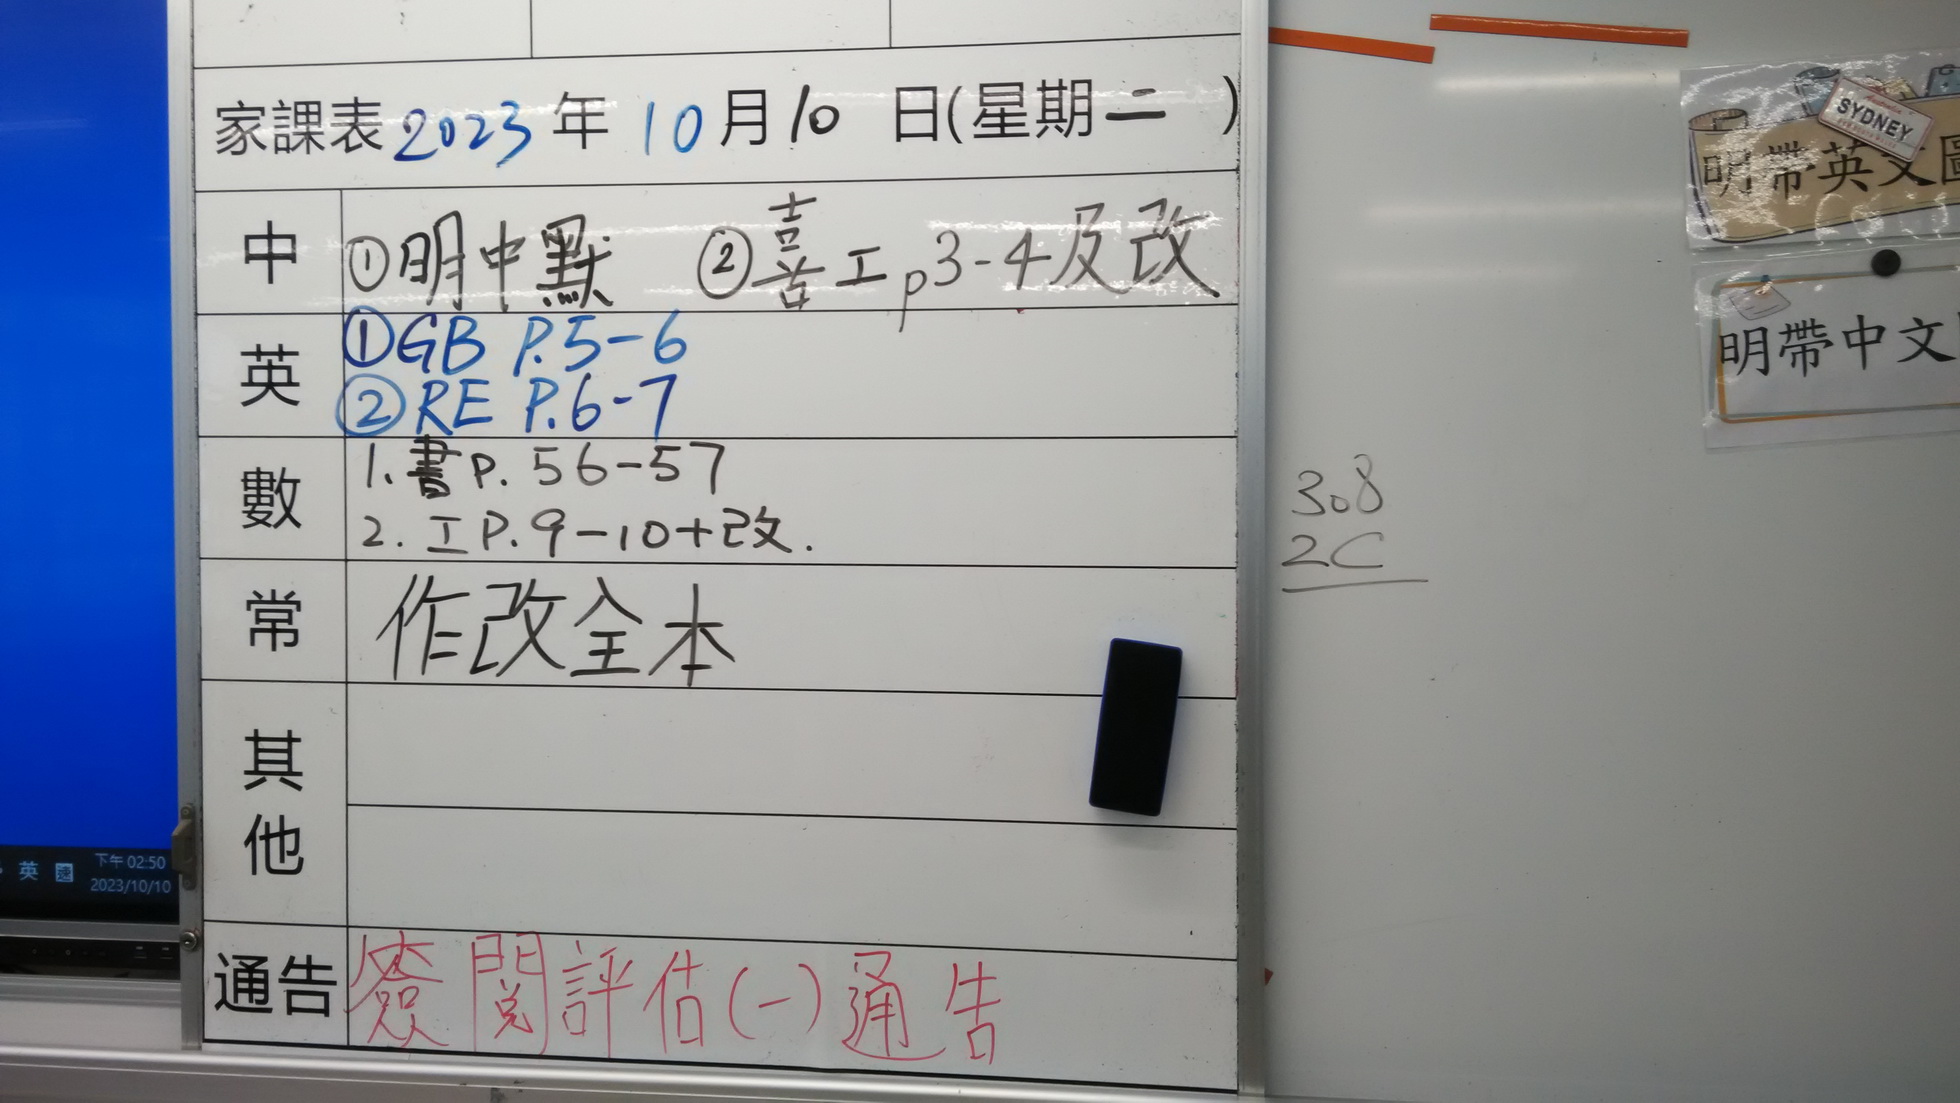 家課表 2023 年 10 月 10 日(星期二 )
中 ①明中默 ②喜工p3-4及改
英 ①GB P.5-6
②RE P.6-7
數 1. 書P. 56-57
2. 工P.9-10+改.
常 作改全本
其他
通告 簽閱評估(一)通告
308
2C
SYDNEY
明帶英文圖
明帶中文
英 速 下午 02:50
2023/10/10